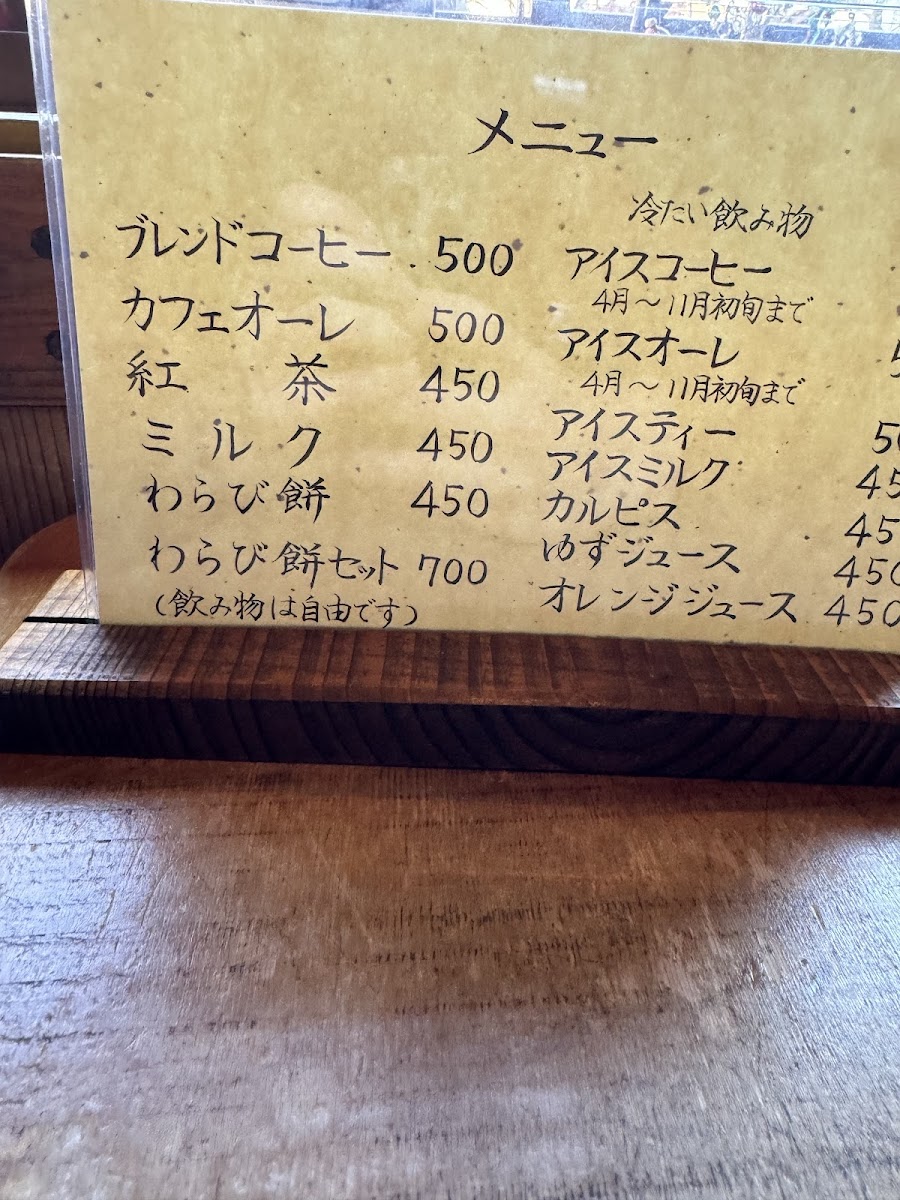 メニュー
ブレンドコーヒー 500
カフェオーレ 500
紅茶 450
ミルク 450
わらび餅 450
わらび餅セット 700
(飲み物は自由です)
冷たい飲み物
アイスコーヒー
4月〜11月初旬まで
アイスオーレ
4月〜11月初旬まで
アイスティー
アイスミルク
カルピス
ゆずジュース 450
オレンジジュース 450